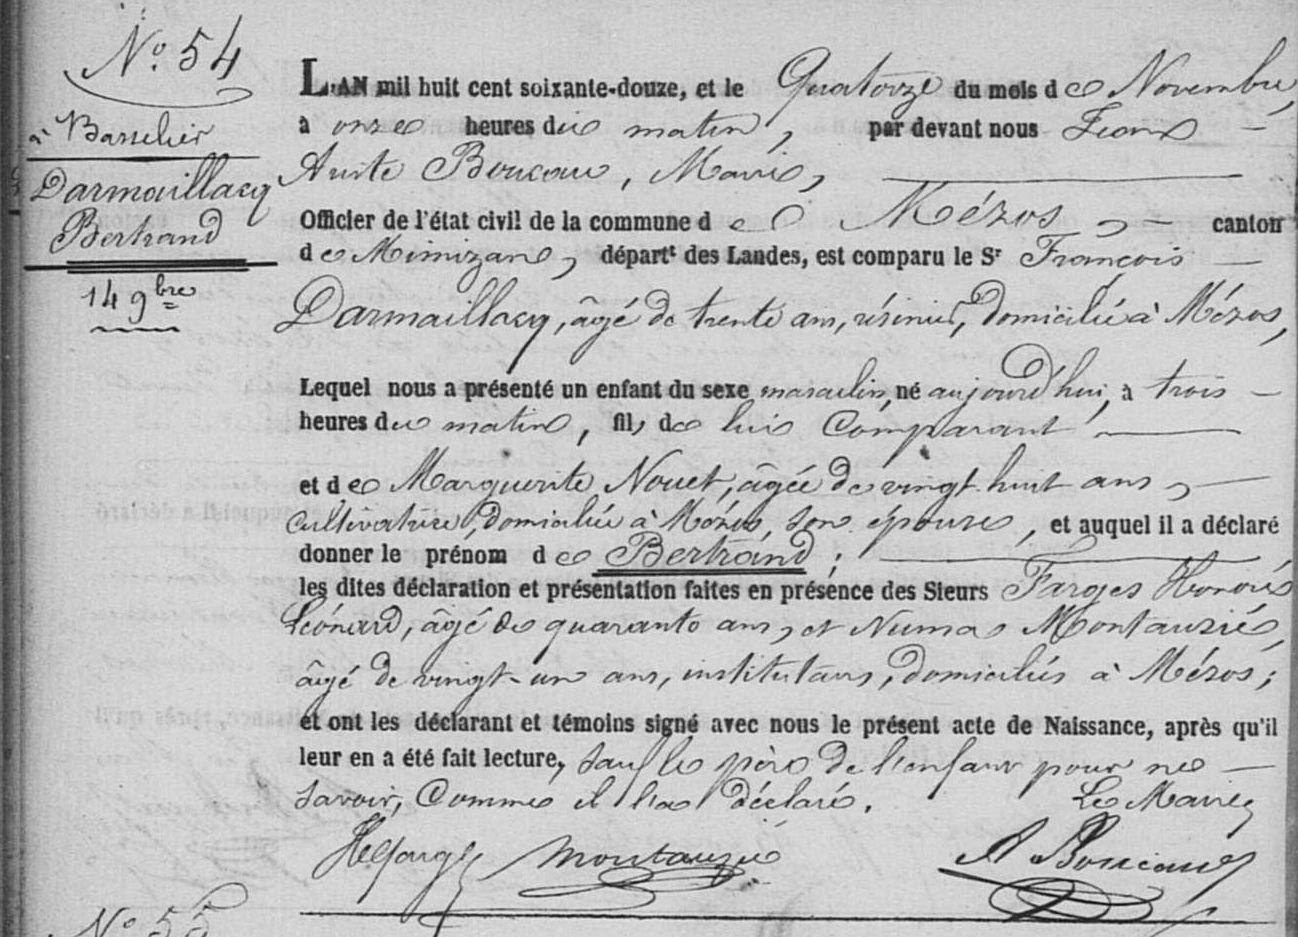 N.º 54
à Basselier
Darmaillacq
Bertrand
14 9bre
L'AN mil huit cent soixante-douze, et le Quatorze du mois de Novembre,
à onze heures du matin, par devant nous Jean
Boucau, Maire,
Officier de l'état civil de la commune de Mézos, canton
de Mimizan, départt des Landes, est comparu le Sr François
Darmaillacq, âgé de trente ans, résinier, domicilié à Mézos,
Lequel nous a présenté un enfant du sexe masculin, né aujourd'hui, à trois
heures du matin, fils de lui Comparant
et de Marguerite Nouet, âgée de vingt huit ans,
cultivatrice, domiciliée à Mézos, son épouse, et auquel il a déclaré
donner le prénom de Bertrand;
les dites déclaration et présentation faites en présence des Sieurs Farges Honoré
Léonard, âgé de quarante ans, et Numa Montauzié,
âgé de vingt-un ans, instituteurs, domiciliés à Mézos;
et ont les déclarant et témoins signé avec nous le présent acte de Naissance, après qu'il
leur en a été fait lecture, sauf le père de l'enfant pour ne
savoir, Comme il l'a déclaré.
Le Maire,
HLFarges Montauzié A Boucau
N.º 55